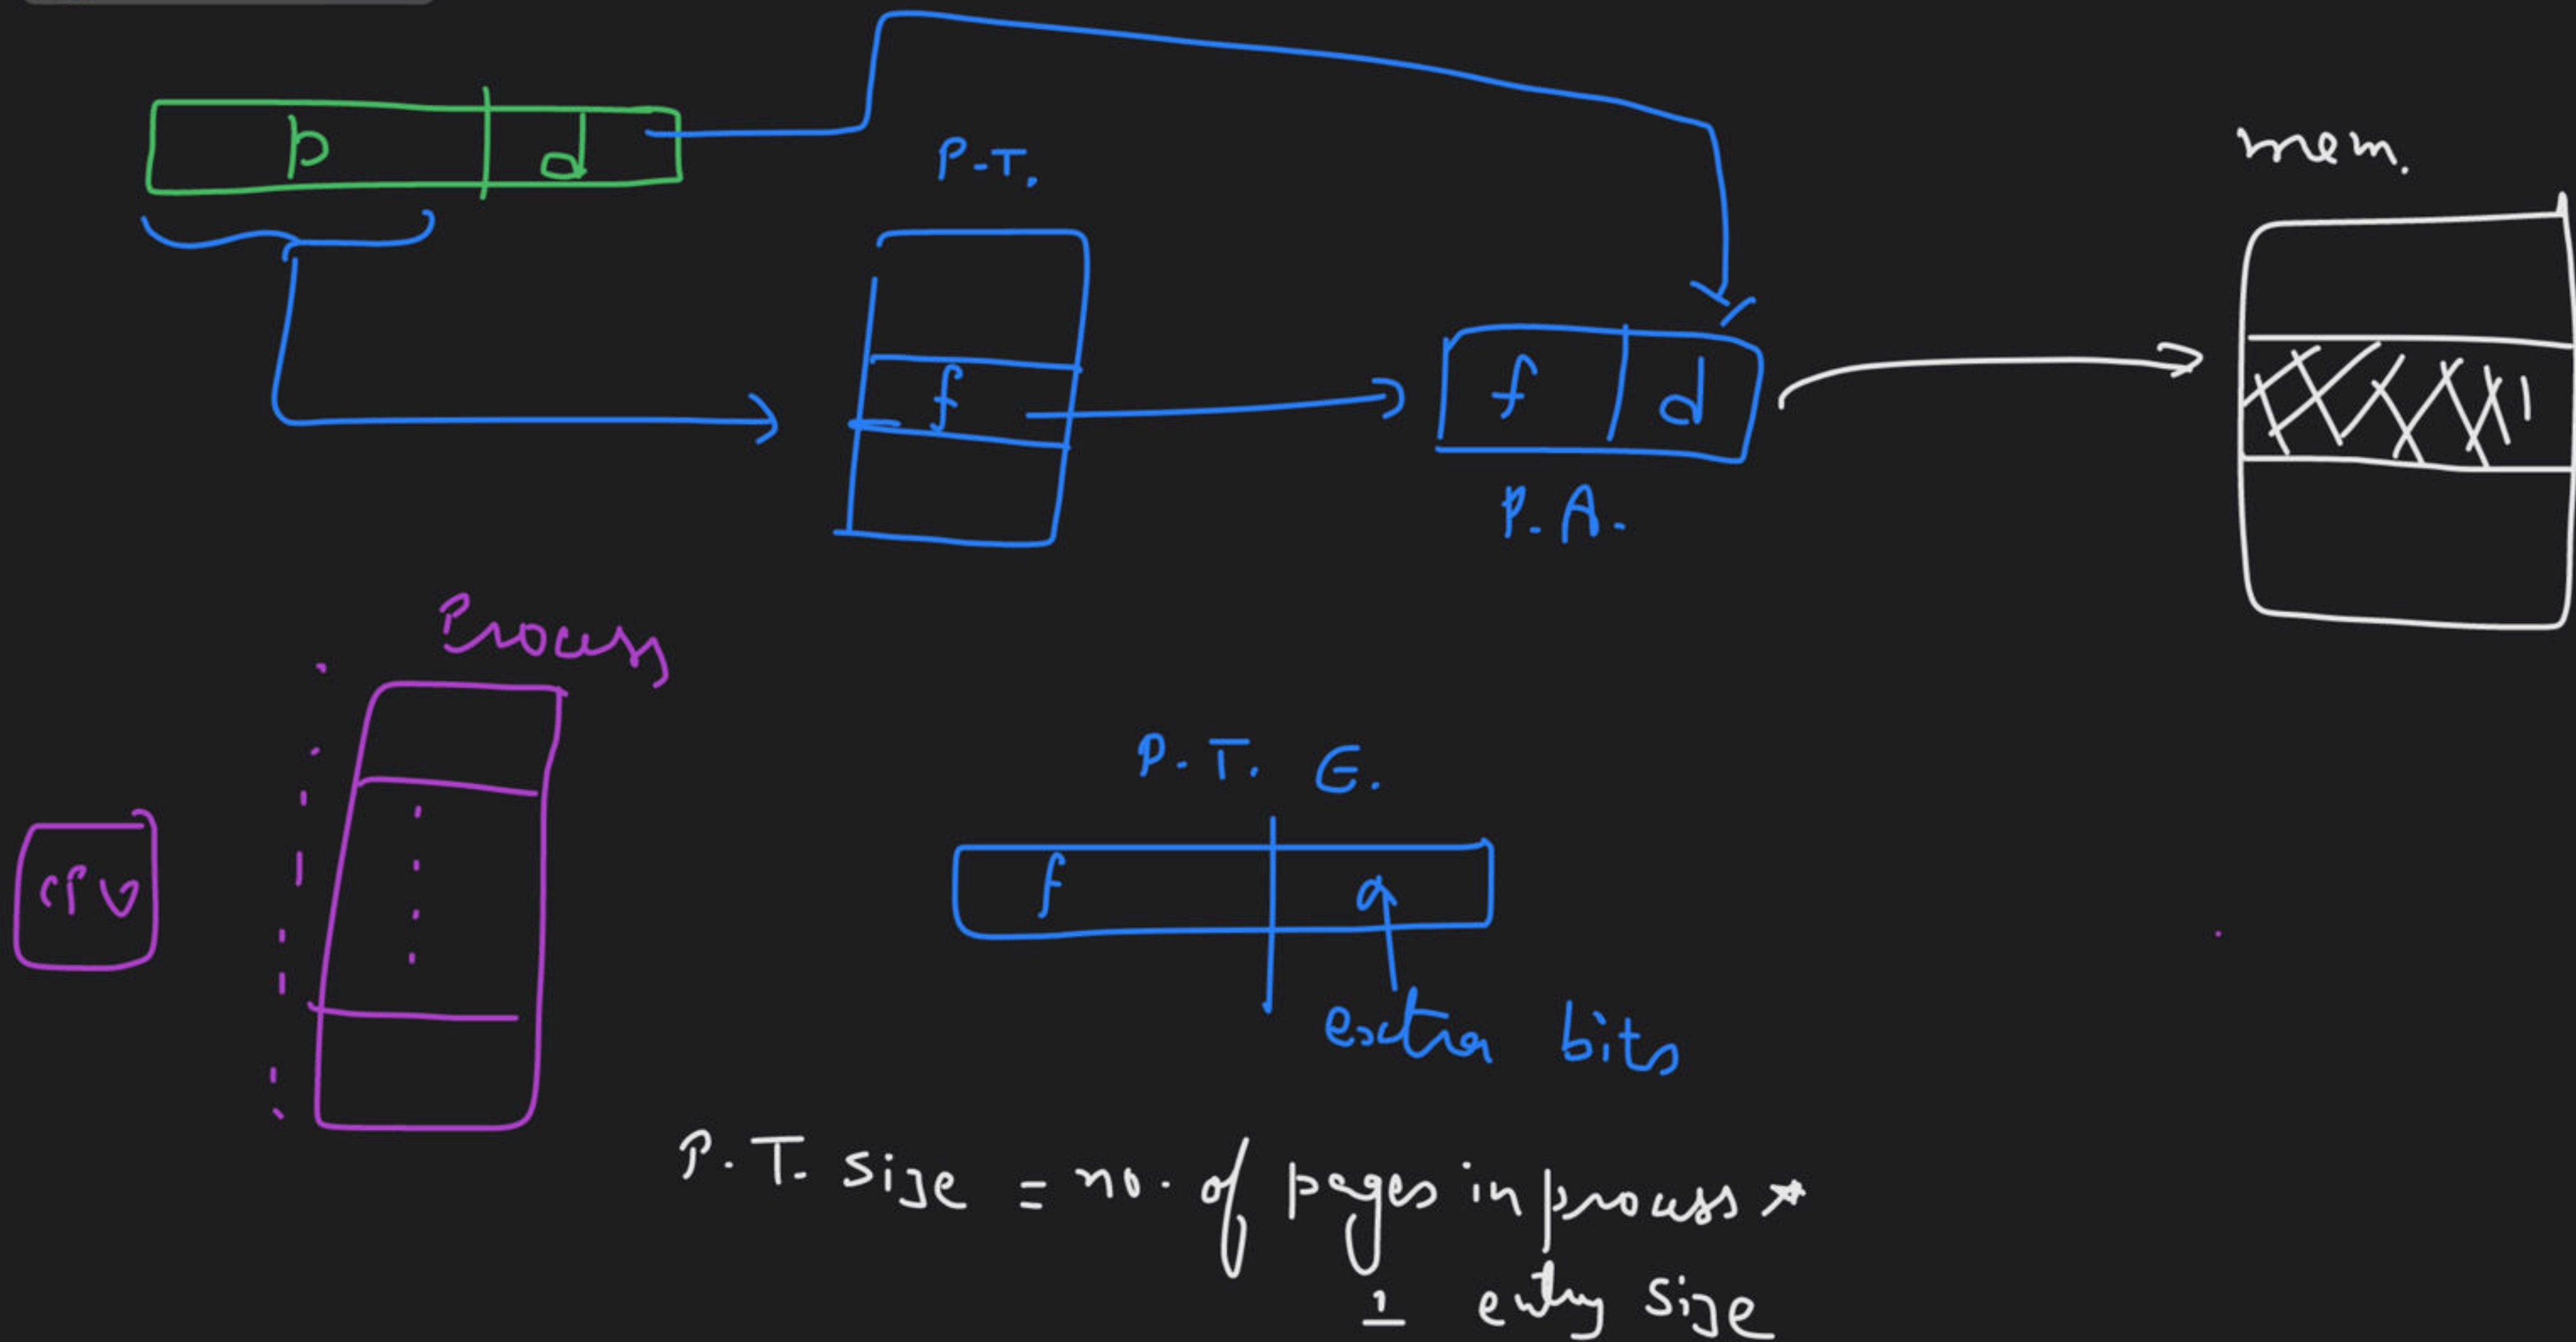 p d
P.T.
mem.
f
f d
P.A.
Process
P.T.E.
CPU
f a
extra bits
P.T. size = no. of pages in process *
1 entry size